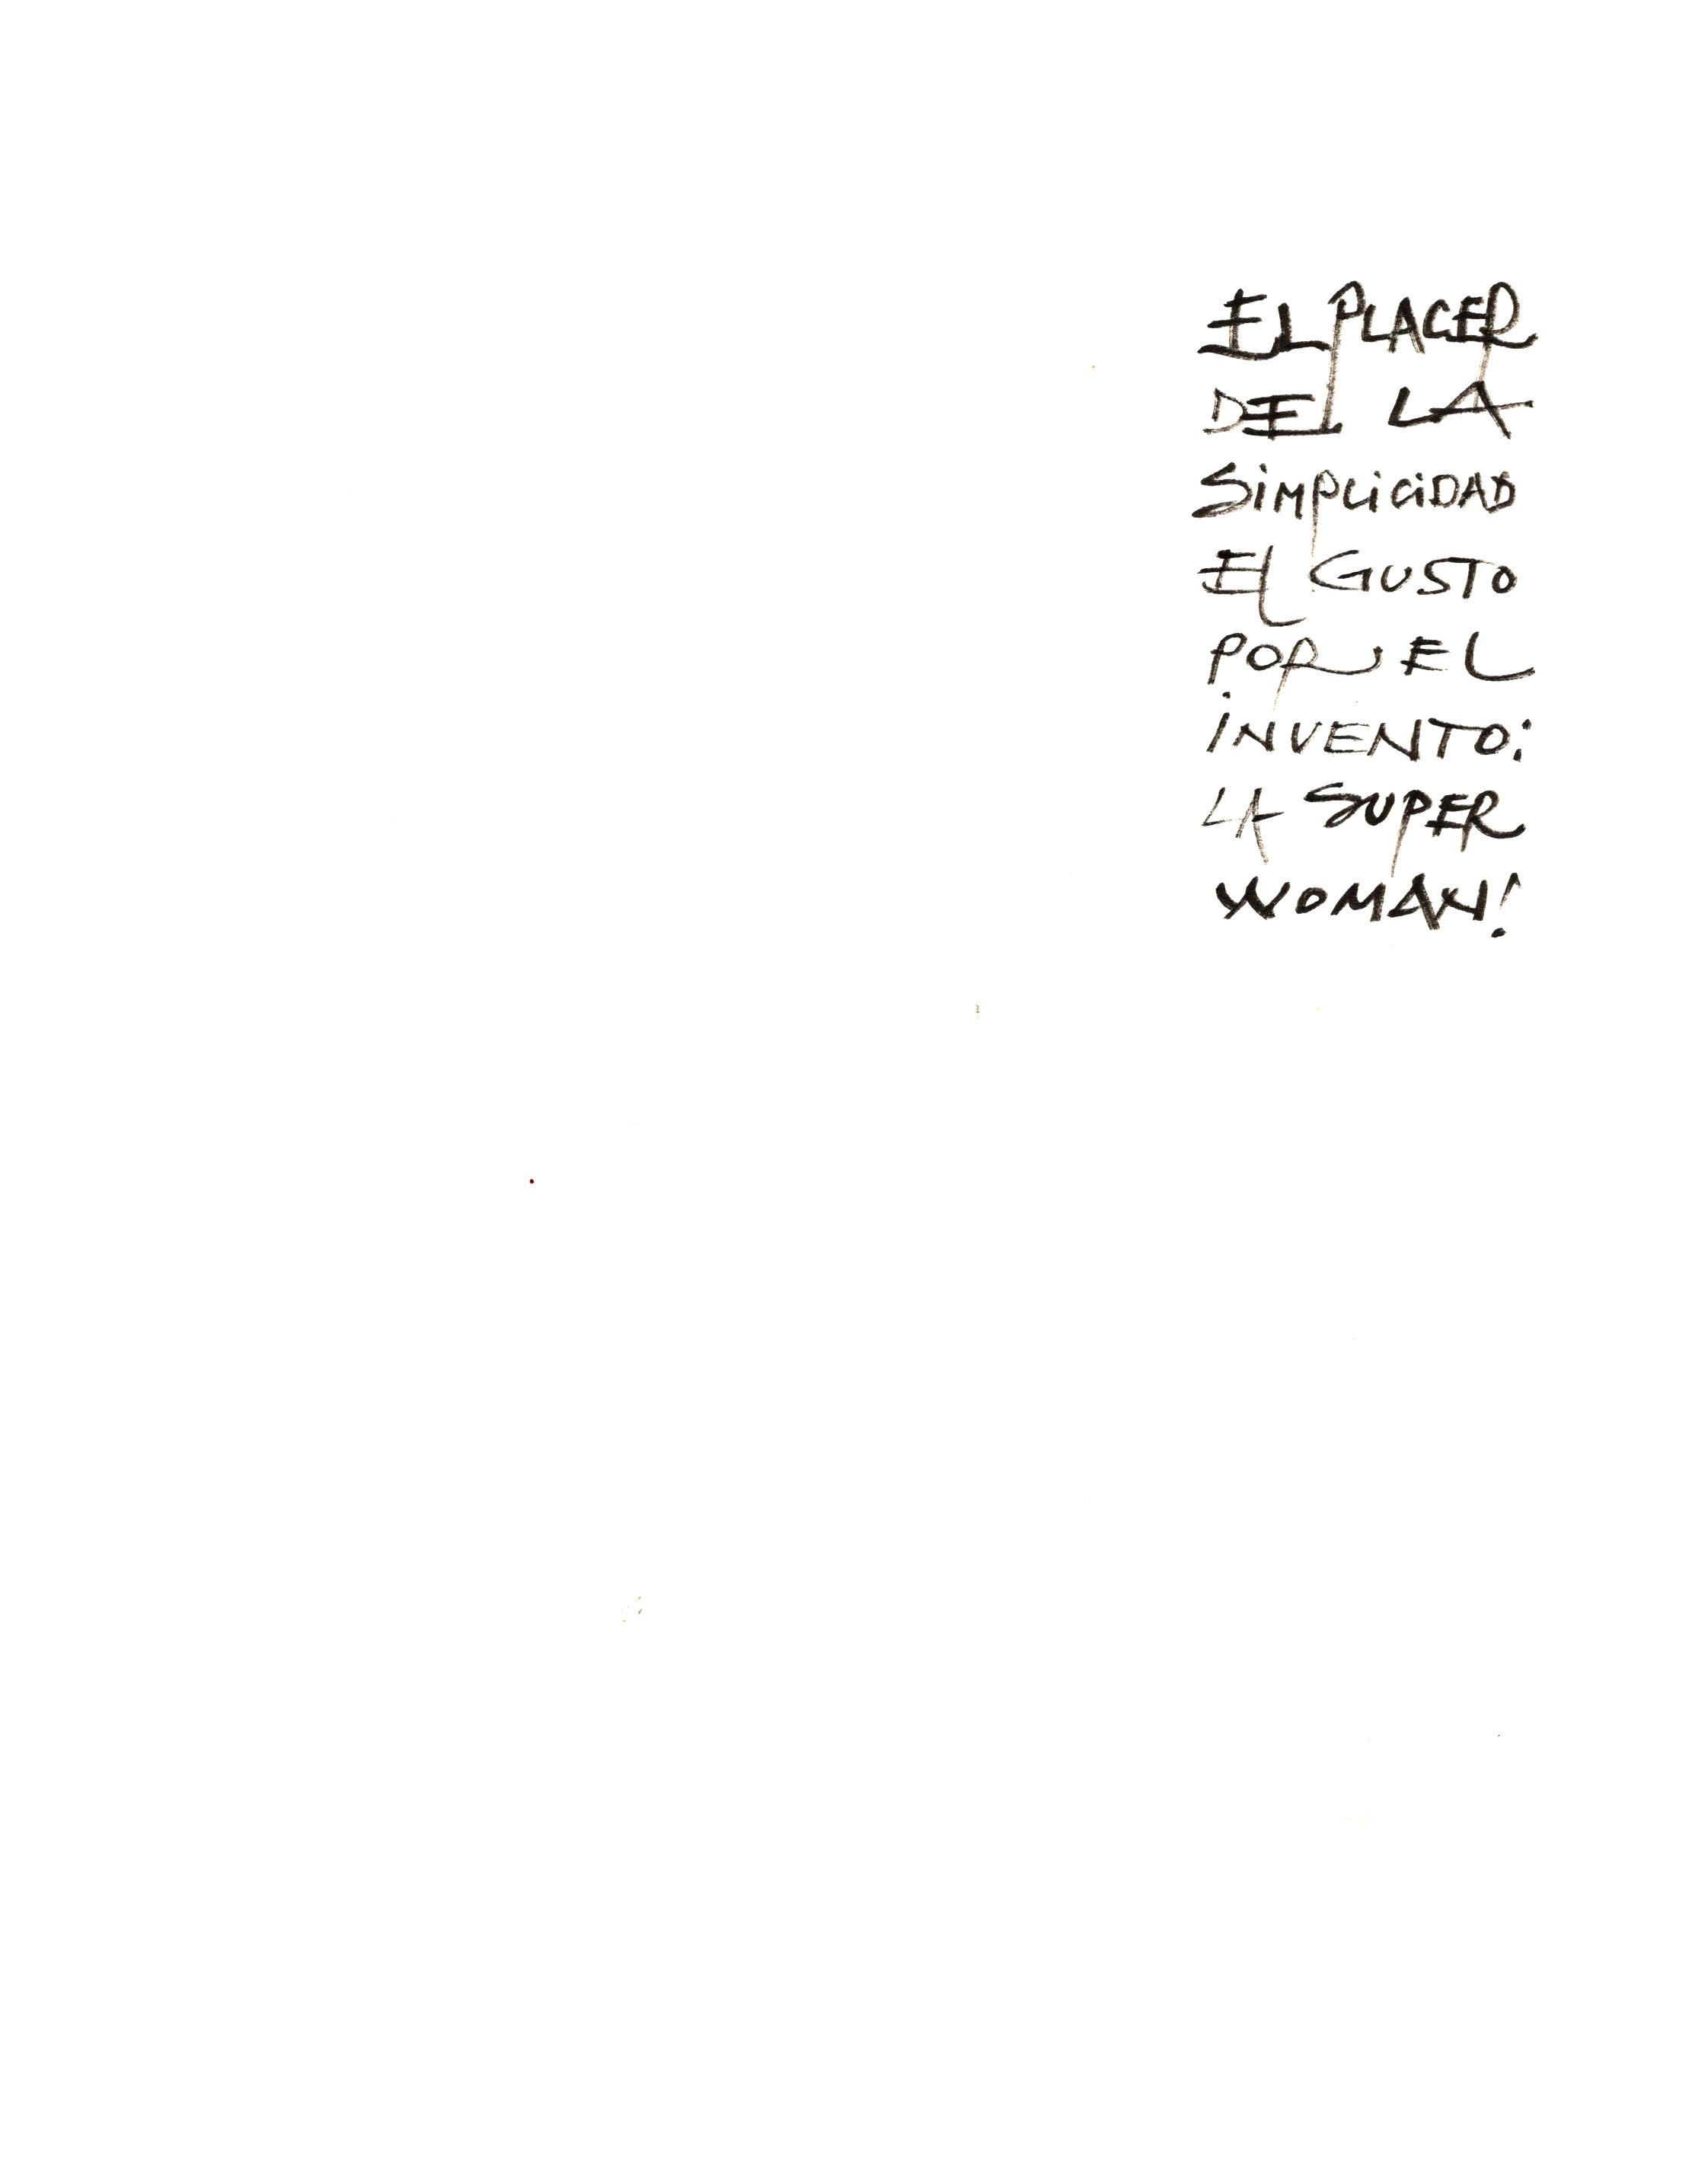 EL PLACER
DE LA
SiMPLiCiDAD
El GUSTO
POR EL
iNVENTO:
LA SUPER
WOMAN!